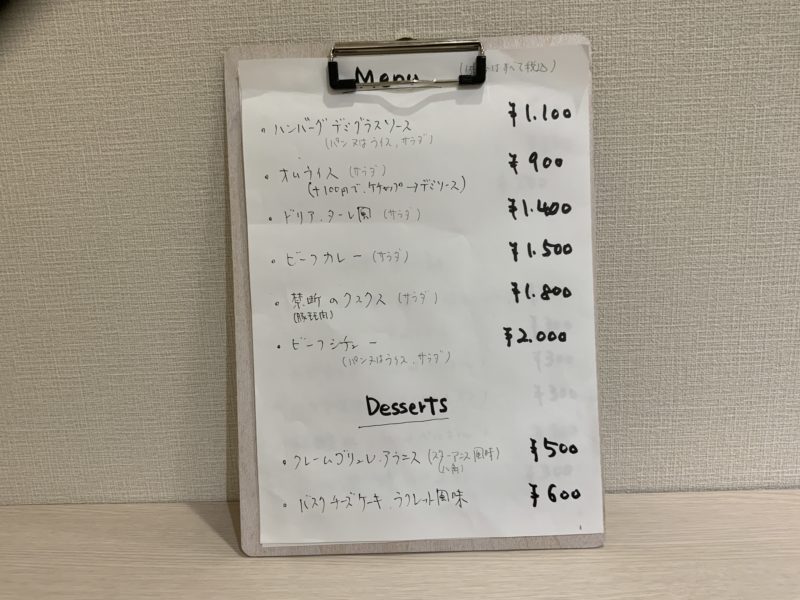 Menu
すべて税込)
・ハンバーグ デミグラスソース ¥1.100
(パン又はライス、サラダ)
・オムライス (サラダ) ¥900
(+100円で、ケチャップ→デミソース)
・ドリア、タール風 (サラダ) ¥1.400
・ビーフカレー (サラダ) ¥1.500
・禁断のクスクス (サラダ) ¥1.800
・ビーフシチュー ¥2.000
(パン又はライス、サラダ)
Desserts
・クレームブリュレ、アラニス (スターアニス風味) ¥500
(八角)
・バスクチーズケーキ、ラクレット風味 ¥600